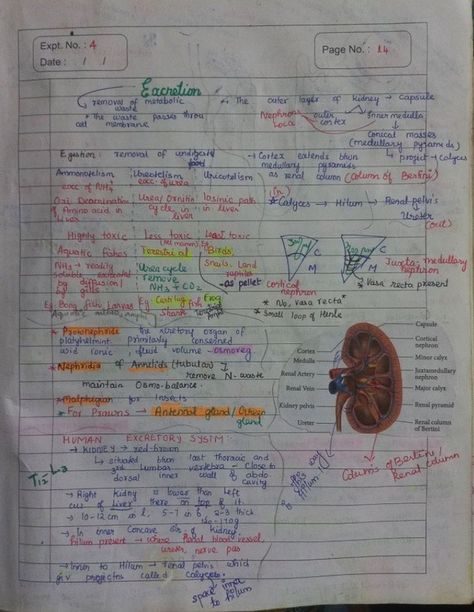 Expt. No. : 4
Date : / /
Page No. : 14
Excretion
removal of metabolic
waste
* the waste passes throu
cell membrane
* The outer layer of kidney → capsule
Nephrons
Loca
outer
cortex
Inner medulla
conical masses
(medullary pyramids)
project → calyces
Egestion: removal of undigested
food
→ Cortex extends btwn
medullary pyramids
as renal column (Column of Bertini)
Ammonotelism
exc. of NH₃
Ureotelism
exc. of urea
Uricotelism
Oxi Deamination
of Amino acid in
liver
Urea/Ornithin
cycle in
liver
Inosinic path
in liver
(in)
* Calyces → Hilum → Renal pelvis
Ureter
(out)
Highly toxic
Less toxic
Least toxic
Aquatic fishes
Terestrial
Birds,
Snails, Land
reptiles
NH₃ → readily
soluble excreted
by diffusion
by gills
Urea cycle
remove
NH₃ + CO₂
-as pellet
Eg. Bony fish, Larvas
Eg: Cartilag fish
Shark
Frog
C
M
cortical
nephron
C
M
Juxta-medullary
nephron
* Vasa recta present
* No, vasa recta
* Small loop of Henle
* Protonephridia the excretory organ of
platyhelmint. primarly conserned
and ionic & fluid volume - osmoreg
* Nephridia of Annelids (tubular)
remove N-waste
maintain Osmo-balance.
* Malphegian for insects
* For Prawns - Antennal gland/Green
gland
Capsule
Cortical
nephron
Minor calyx
Juxtamedullary
nephron
Major calyx
Renal pyramid
Renal column
of Bertini
Cortex
Medulla
Renal Artery
Renal Vein
Kidney pelvis
Ureter
HUMAN EXCRETORY SYSTEM:
→ KIDNEY → red-brown
T12 L3
situated btwn last thoracic and
3rd Lumbar vertebra - Close to
dorsal inner wall of abdo
cavity
→ Right Kidney is lower than left
cus of liver there on top of it.
→ 10-12 cm in l, 5-7 in b, 2-3 thick
120-170g
→ In inner Concave sur. of kidney
hilum present → where Renal blood vessel
ureter, nerve pas
→ Inner to Hilum → renal pelvis which
giv projectns called calyces.
space inner
to hilum
Column of Bertini/
Renal column